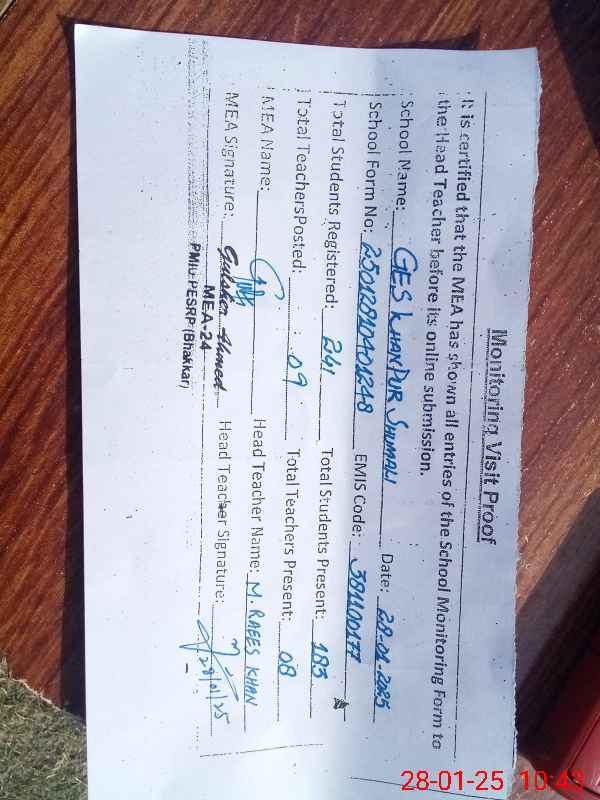 Monitoring Visit Proof
It is certified that the MEA has shown all entries of the School Monitoring Form to
the Head Teacher before its online submission.
School Name: GES KHANPUR SHUMALI Date: 28-01-2025
School Form No: 25012810401248 EMIS Code: 38110017
Total Students Registered: 241 Total Students Present: 183
Total Teachers Posted: 09 Total Teachers Present: 08
MEA Name: Head Teacher Name: M. RAEES KHAN
MEA Signature: Gulsher Ahmed Head Teacher Signature:
28/01/25
MEA-24
PMIU-PESRP (Bhakkar)
28-01-25 10:43